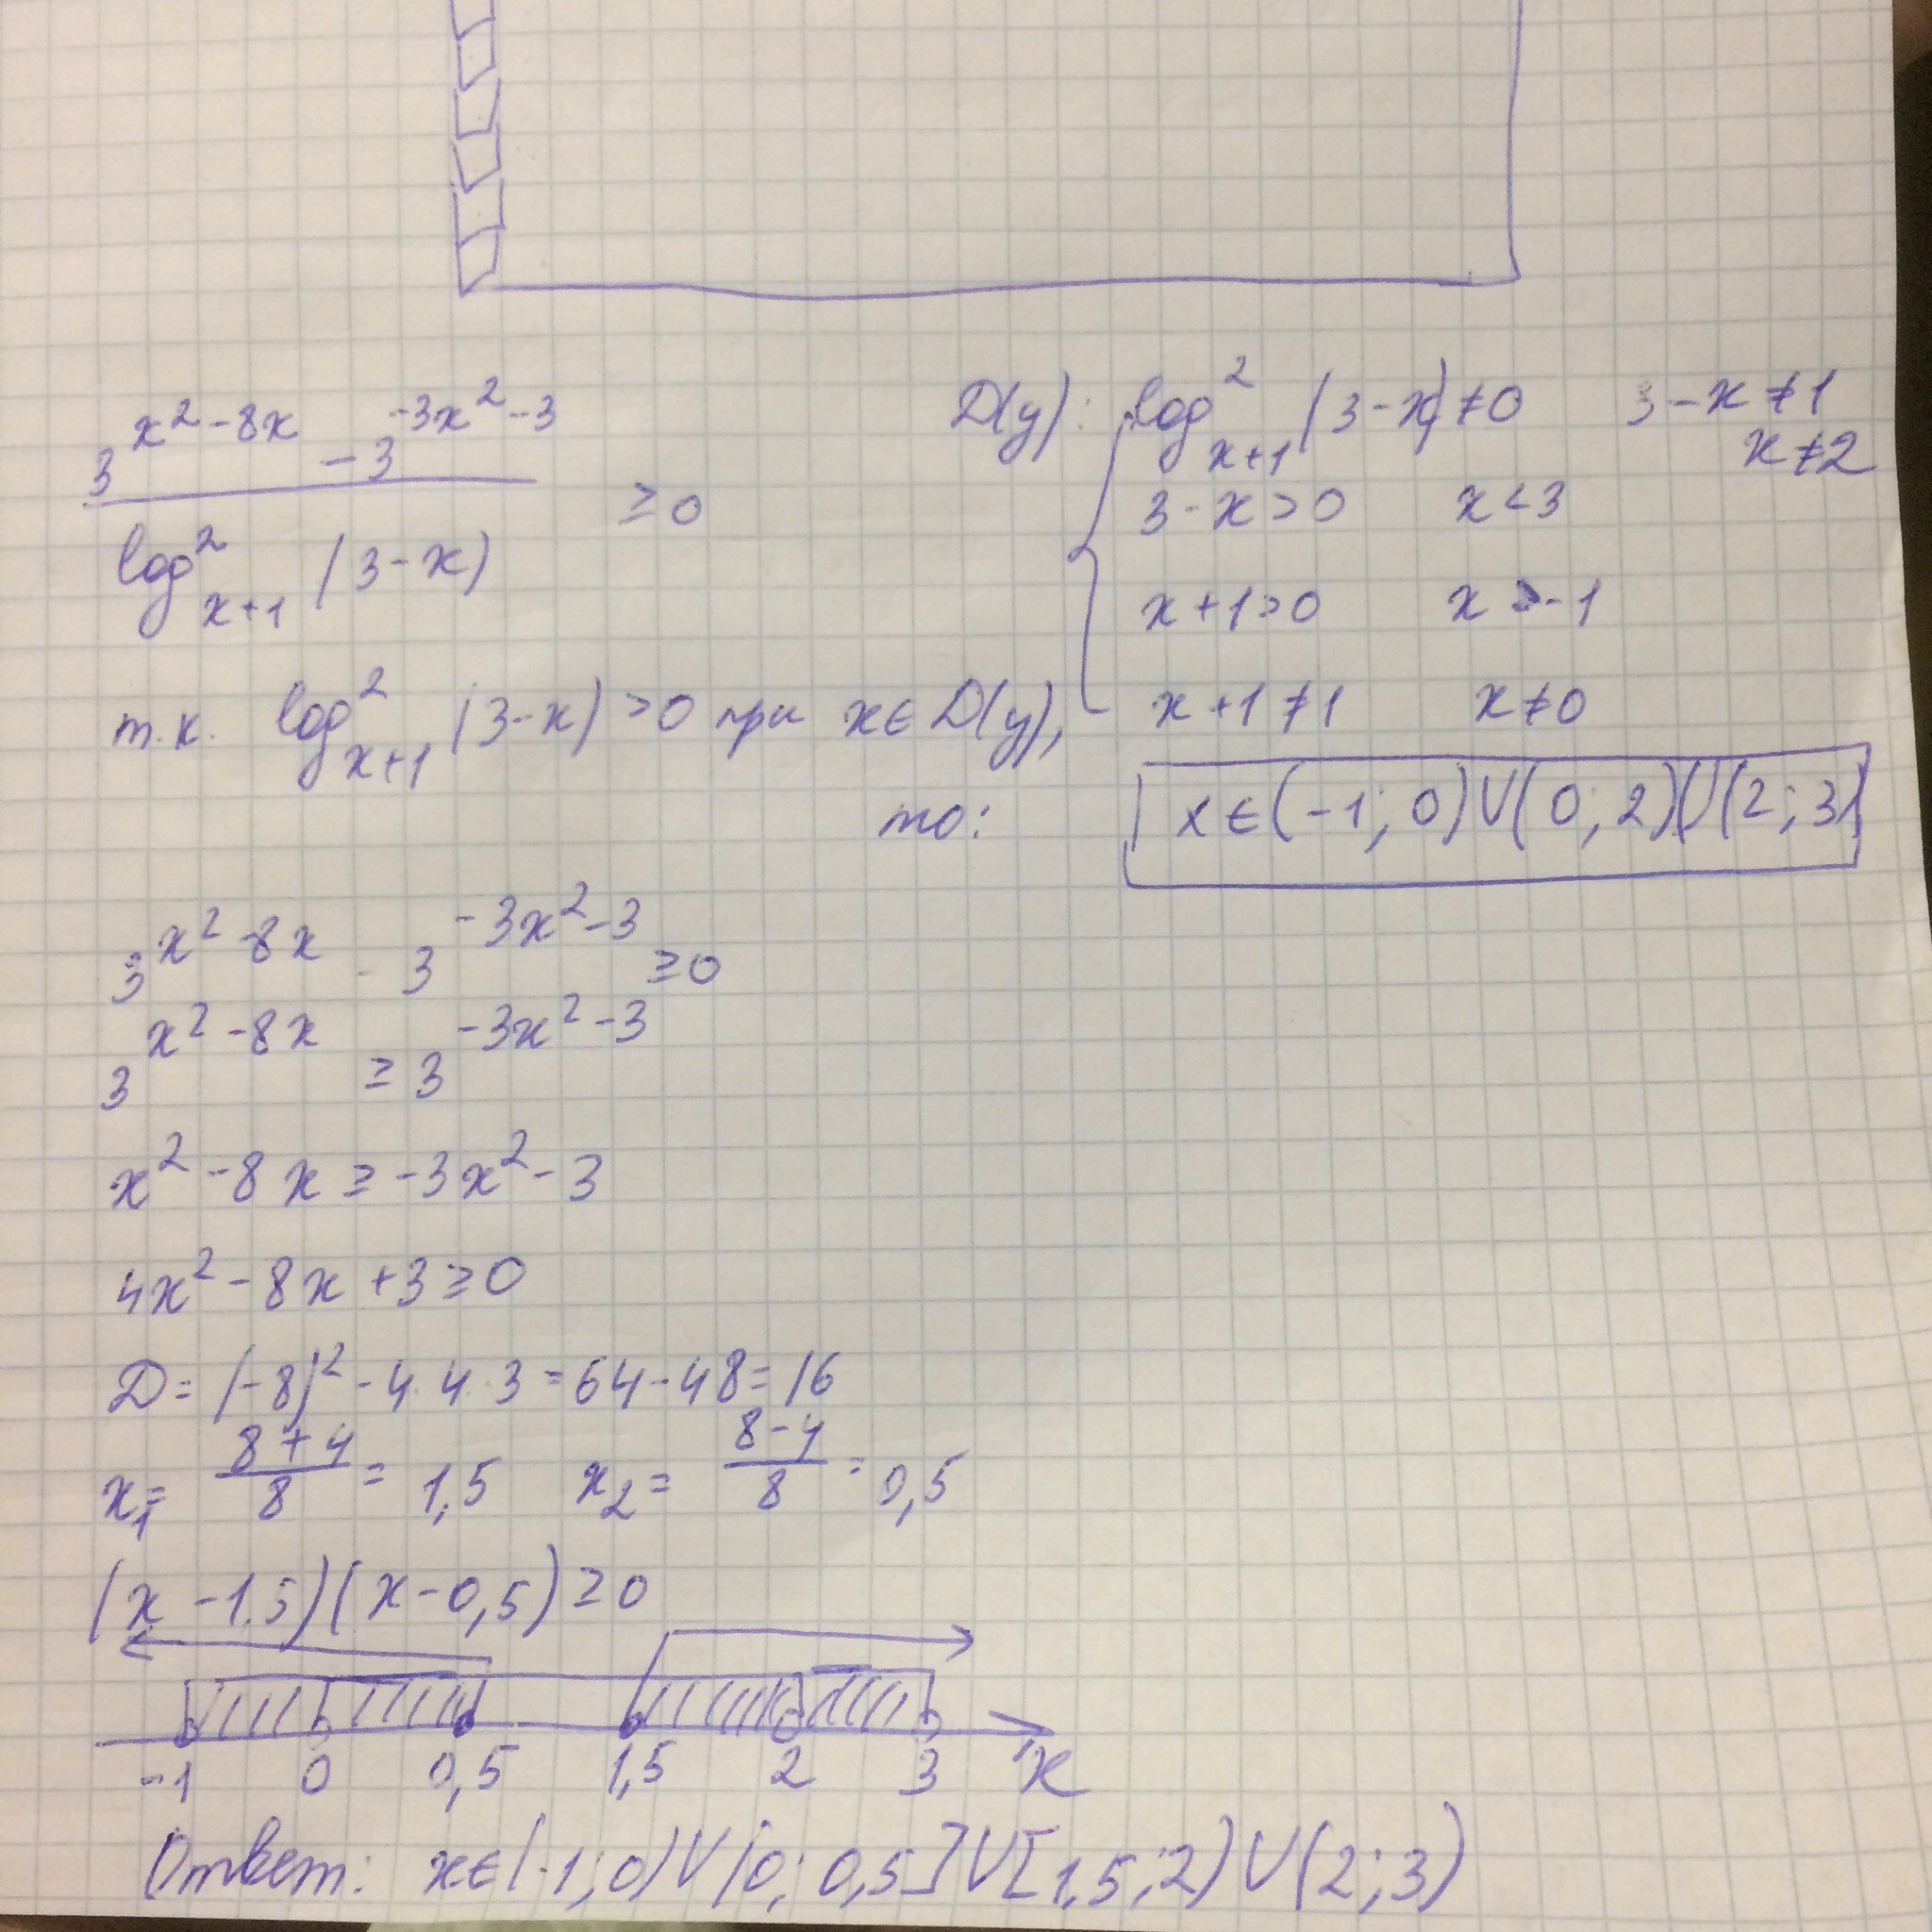 3^(x² - 8x) - 3^(-3x² - 3)
log²_(x+1) (3 - x) ≥ 0
D(y): log²_(x+1) (3 - x) ≠ 0 3 - x ≠ 1
x ≠ 2
3 - x > 0 x < 3
x + 1 > 0 x > -1
x + 1 ≠ 1 x ≠ 0
x ∈ (-1; 0) ∪ (0; 2) ∪ (2; 3)
т.к. log²_(x+1) (3 - x) > 0 при x ∈ D(y),
то:
3^(x² - 8x) - 3^(-3x² - 3) ≥ 0
3^(x² - 8x) ≥ 3^(-3x² - 3)
x² - 8x ≥ -3x² - 3
4x² - 8x + 3 ≥ 0
D = (-8)² - 4·4·3 = 64 - 48 = 16
x₁ = (8 + 4)/8 = 1,5 x₂ = (8 - 4)/8 = 0,5
(x - 1.5)(x - 0,5) ≥ 0
-1 0 0,5 1,5 2 3 x
Ответ: x ∈ (-1; 0) ∪ (0; 0,5] ∪ [1,5; 2) ∪ (2; 3)